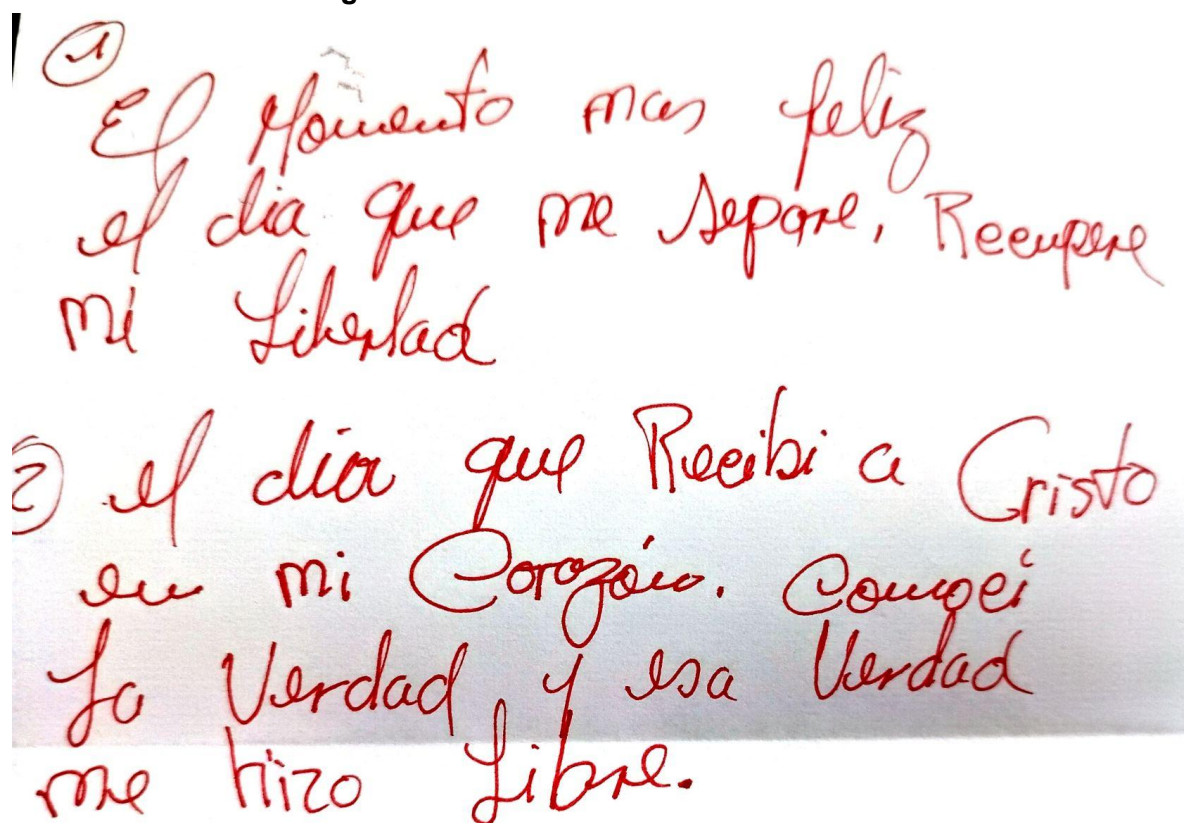 ①
El Momento mas feliz
el dia que me separe, Recupere
mi Libertad
② el dia que Recibi a Cristo
en mi Corazón. Conoci
La Verdad, y esa Verdad
me hizo Libre.